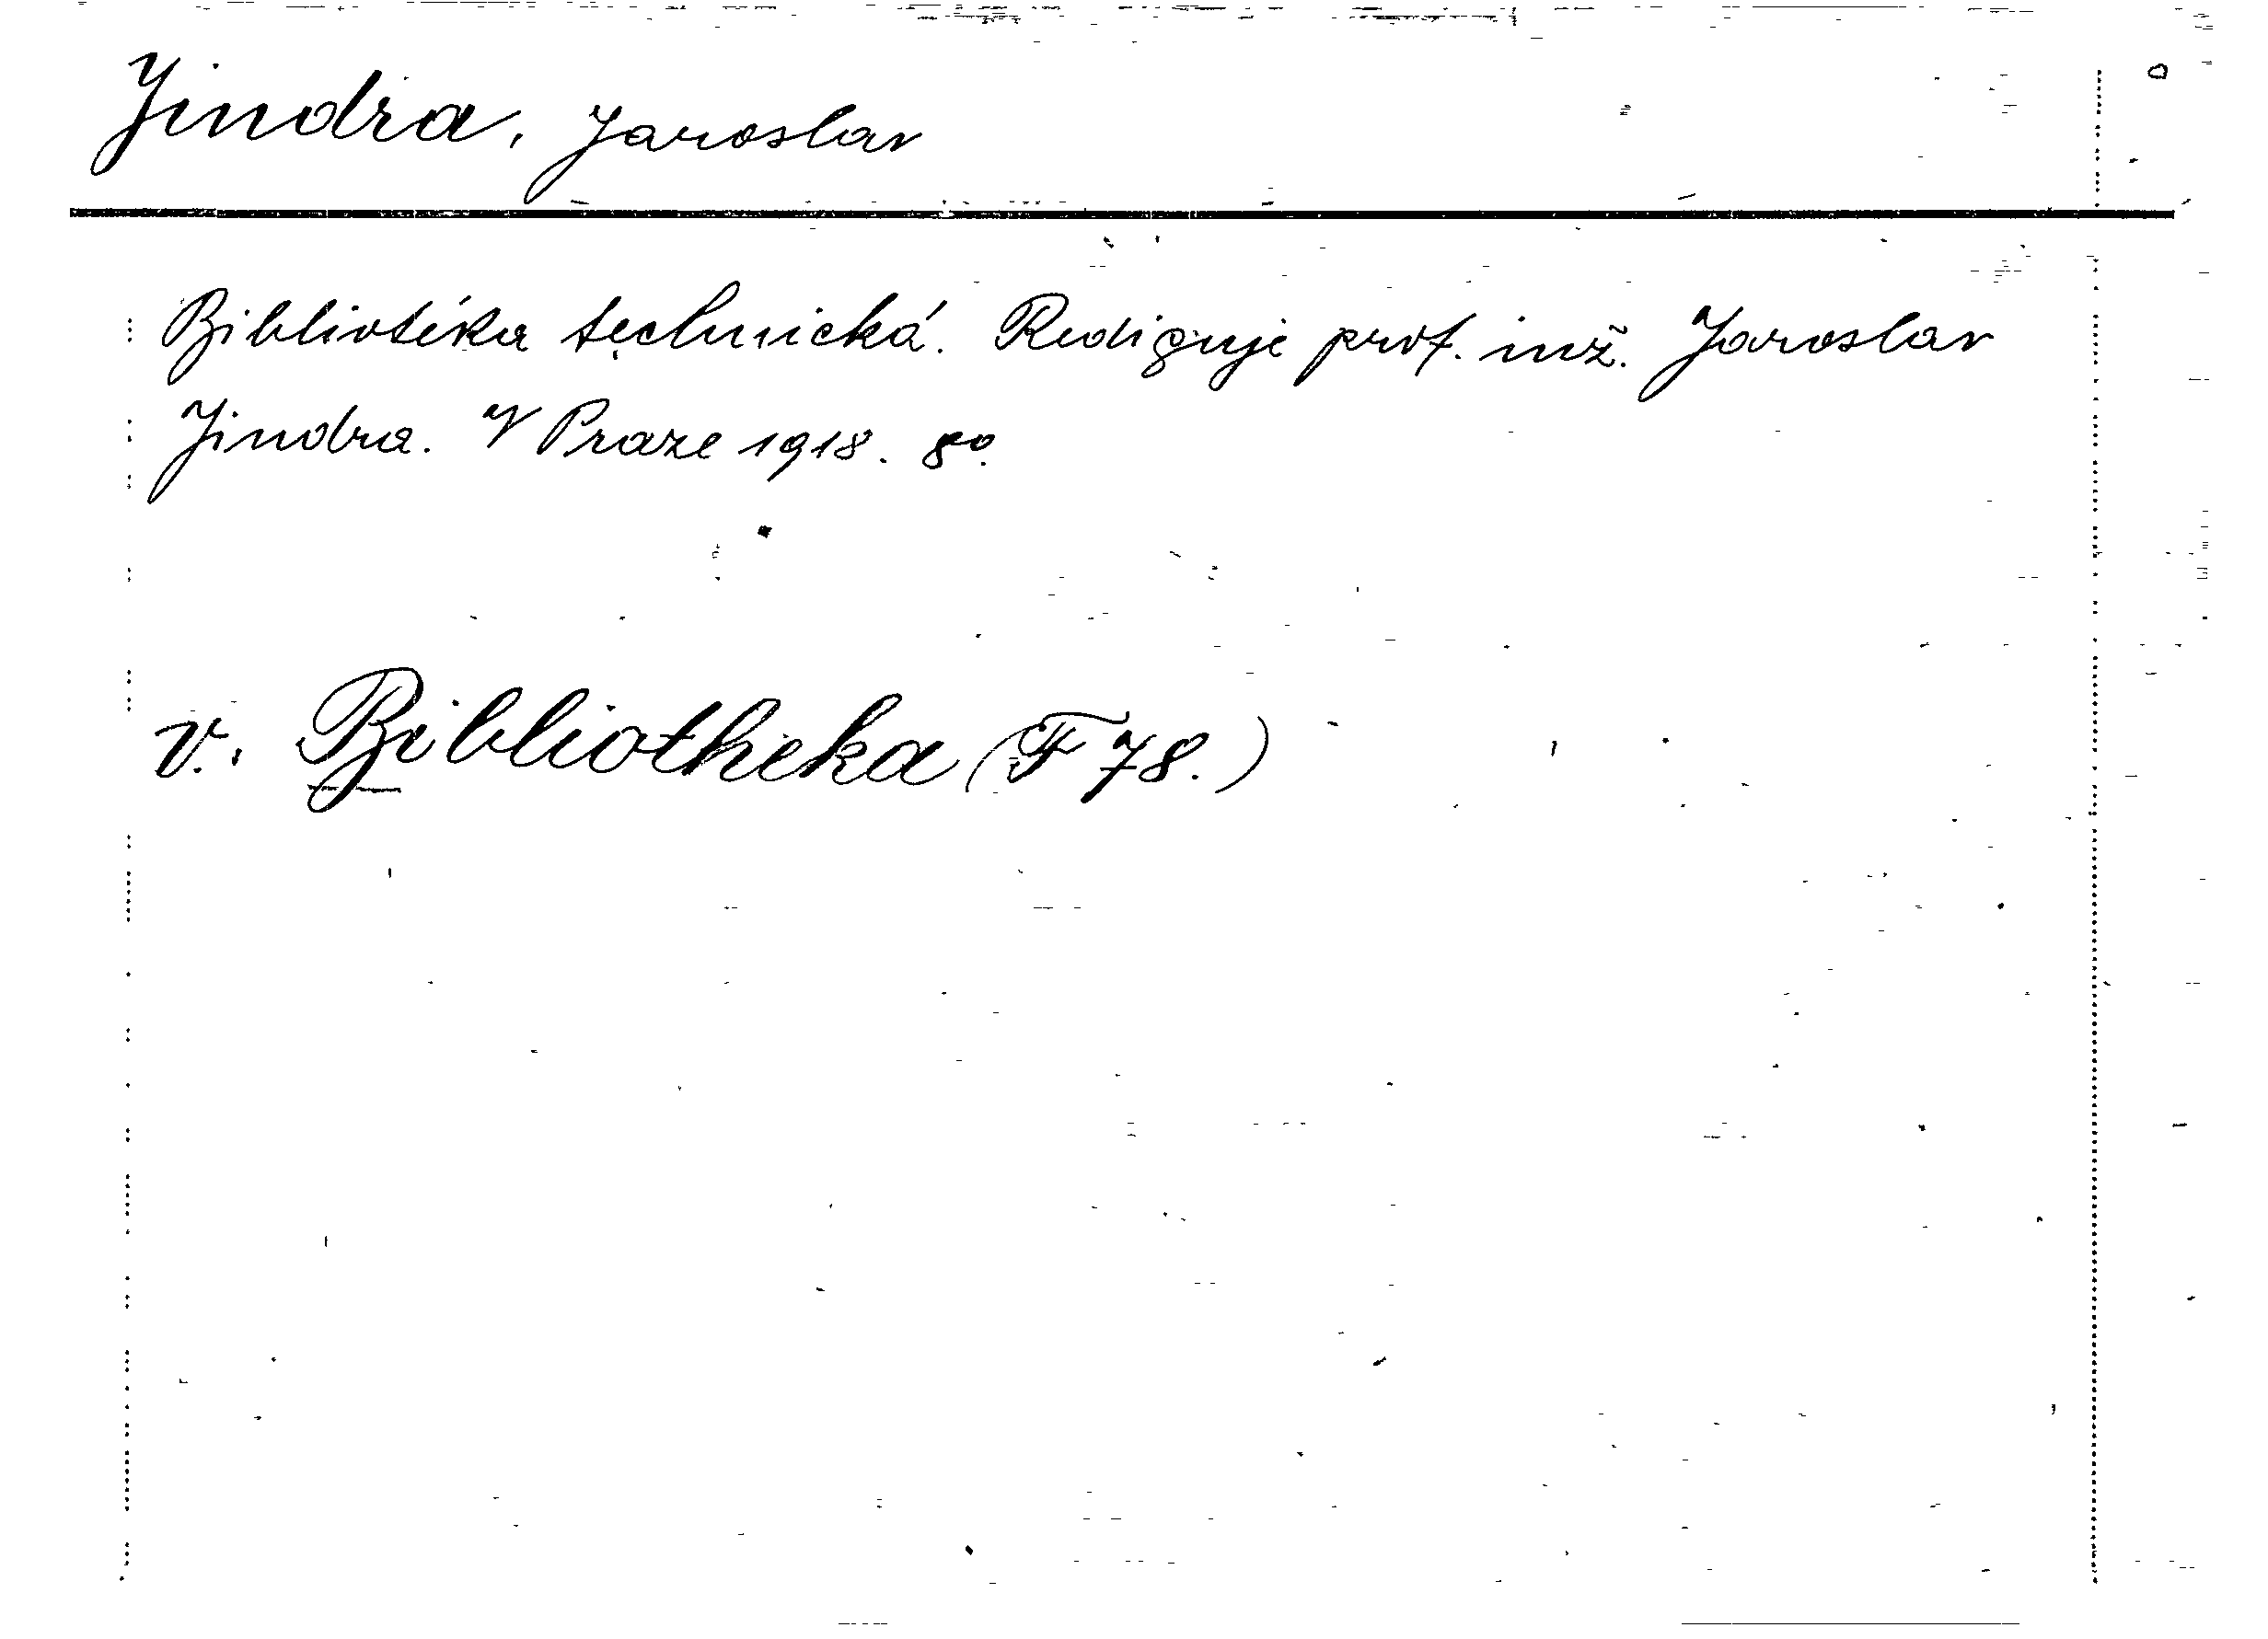 Jindra, Jaroslav
Bibliotéka technická. Rediguje prof. inž. Jaroslav
Jindra. V Praze 1918. 8º.
v. Bibliotheka (F 78.)